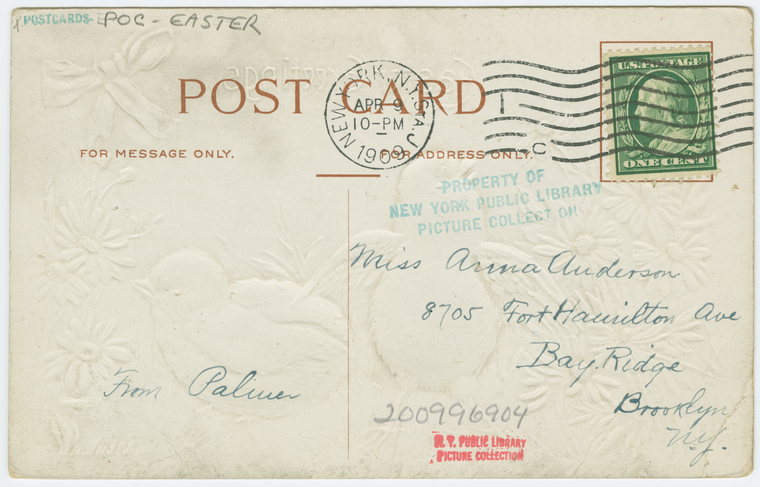 POSTCARDS-E POC - EASTER
POST CARD
NEW YORK, N.Y. STA. J
APR 9
10-PM
1909
C
U.S. POSTAGE
ONE CENT
FOR MESSAGE ONLY.
FOR ADDRESS ONLY.
PROPERTY OF
NEW YORK PUBLIC LIBRARY
PICTURE COLLECTION
Miss Anna Anderson
8705 Fort Hamilton Ave
Bay Ridge
Brooklyn
NY.
From Palmer
200996904
N.Y. PUBLIC LIBRARY
PICTURE COLLECTION